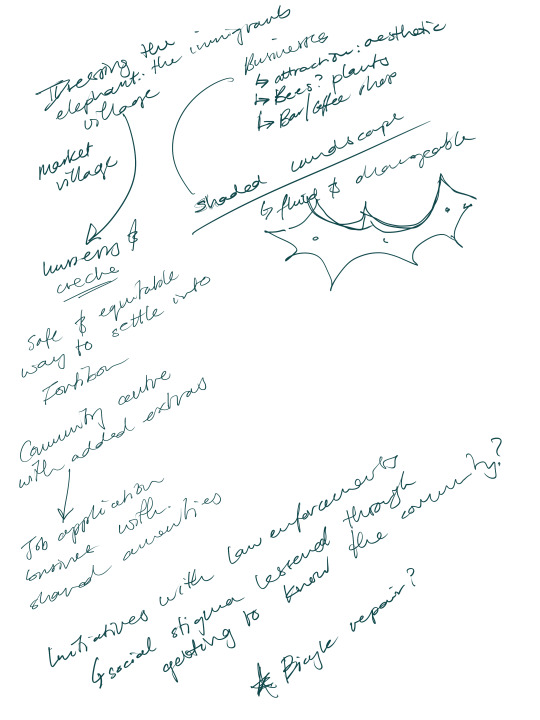 Dressing the
elephant: the immigrants
village
market
village
nursery &
creche
Safe & equitable
way to settle into
Fontibon
Community centre
with added extras
Job application
business with
shared amenities
Businesses
↳ attraction: aesthetic
↳ Bees? plants
↳ Bar/coffee shop
shaded landscape
↳ fluid & changeable
Initiatives with law enforcements
↳ social stigma lessened through
getting to know the community?
* Bicycle repair?